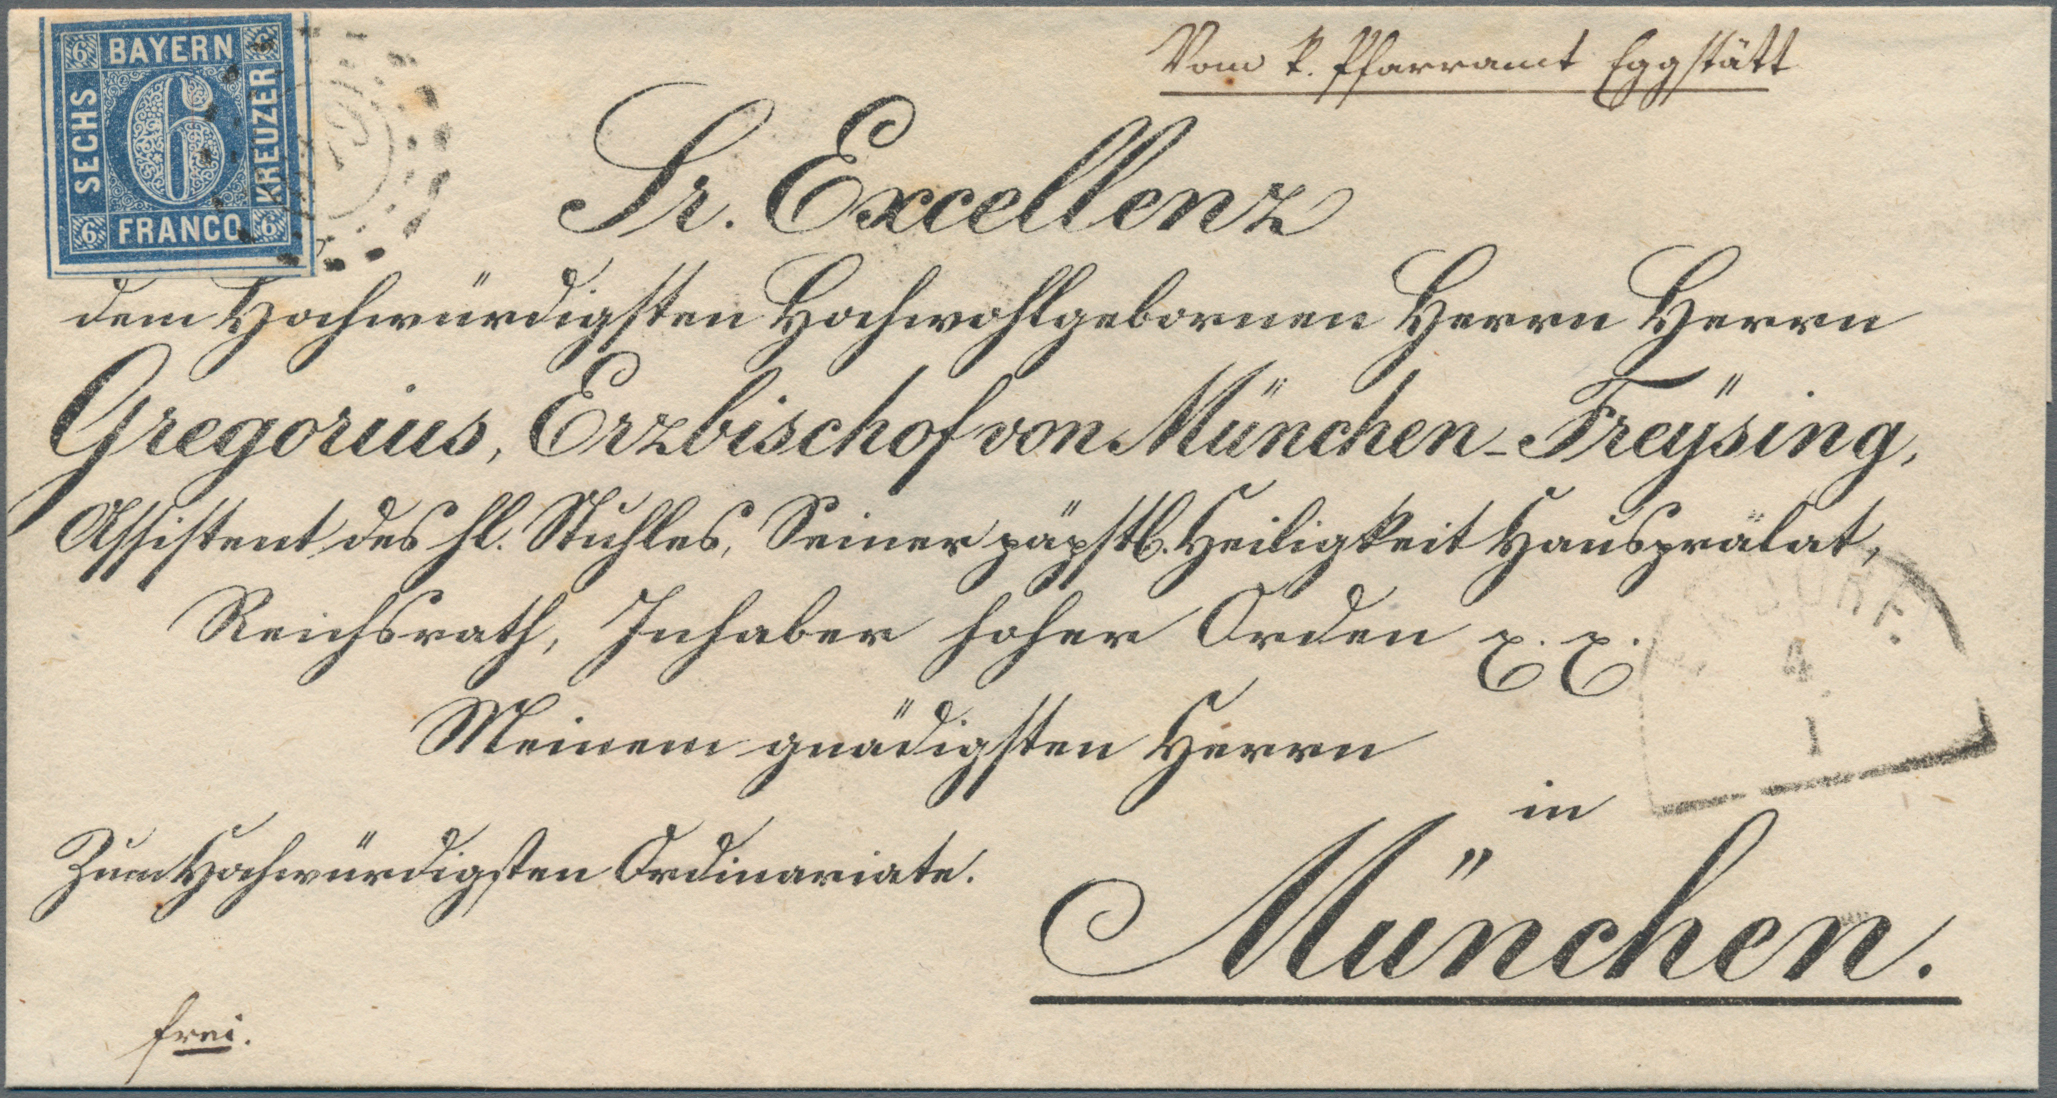 Vom k. Pfarramt Eggstätt
6 BAYERN 6
SECHS 6 KREUZER
6 FRANCO 6
Sr. Excellenz
dem Hochwürdigsten Hochwohlgebornen Herrn Herrn
Gregorius, Erzbischof von München-Freÿsing,
Assistent des hl. Stuhles, Seiner päpstl. Heiligkeit Hausprälat,
Reichsrath, Inhaber hoher Orden
4
1
Meinem gnädigsten Herrn
in
Zum Hochwürdigsten Ordinariate.
München.
frei.